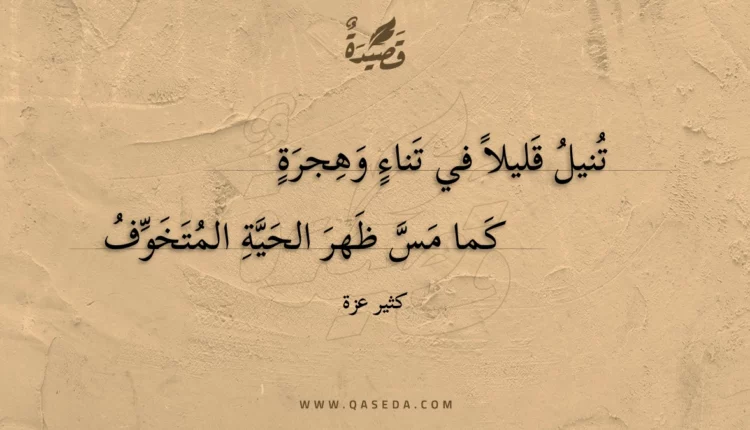 قَصِيدَةٌ
تُنيلُ قَليلاً في تَناءٍ وَهِجرَةٍ
كَما مَسَّ ظَهرَ الحَيَّةِ المُتَخَوِّفُ
كثير عزة
WWW.QASEDA.COM